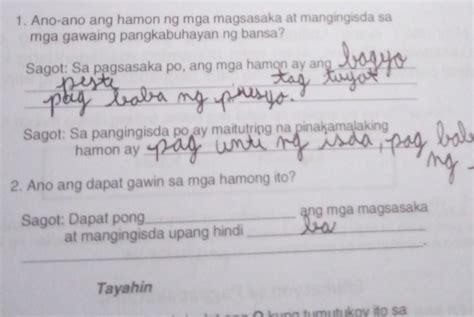 1. Ano-ano ang hamon ng mga magsasaka at mangingisda sa
mga gawaing pangkabuhayan ng bansa?
Sagot: Sa pagsasaka po, ang mga hamon ay ang bagyo
peste tag tuyat
pag baba ng presyo.
Sagot: Sa pangingisda po ay maituturing na pinakamalaking
hamon ay pag unti ng isda, pag bab
ng
2. Ano ang dapat gawin sa mga hamong ito?
Sagot: Dapat pong ang mga magsasaka
at mangingisda upang hindi ba
Tayahin
O kung tumutukoy ito sa